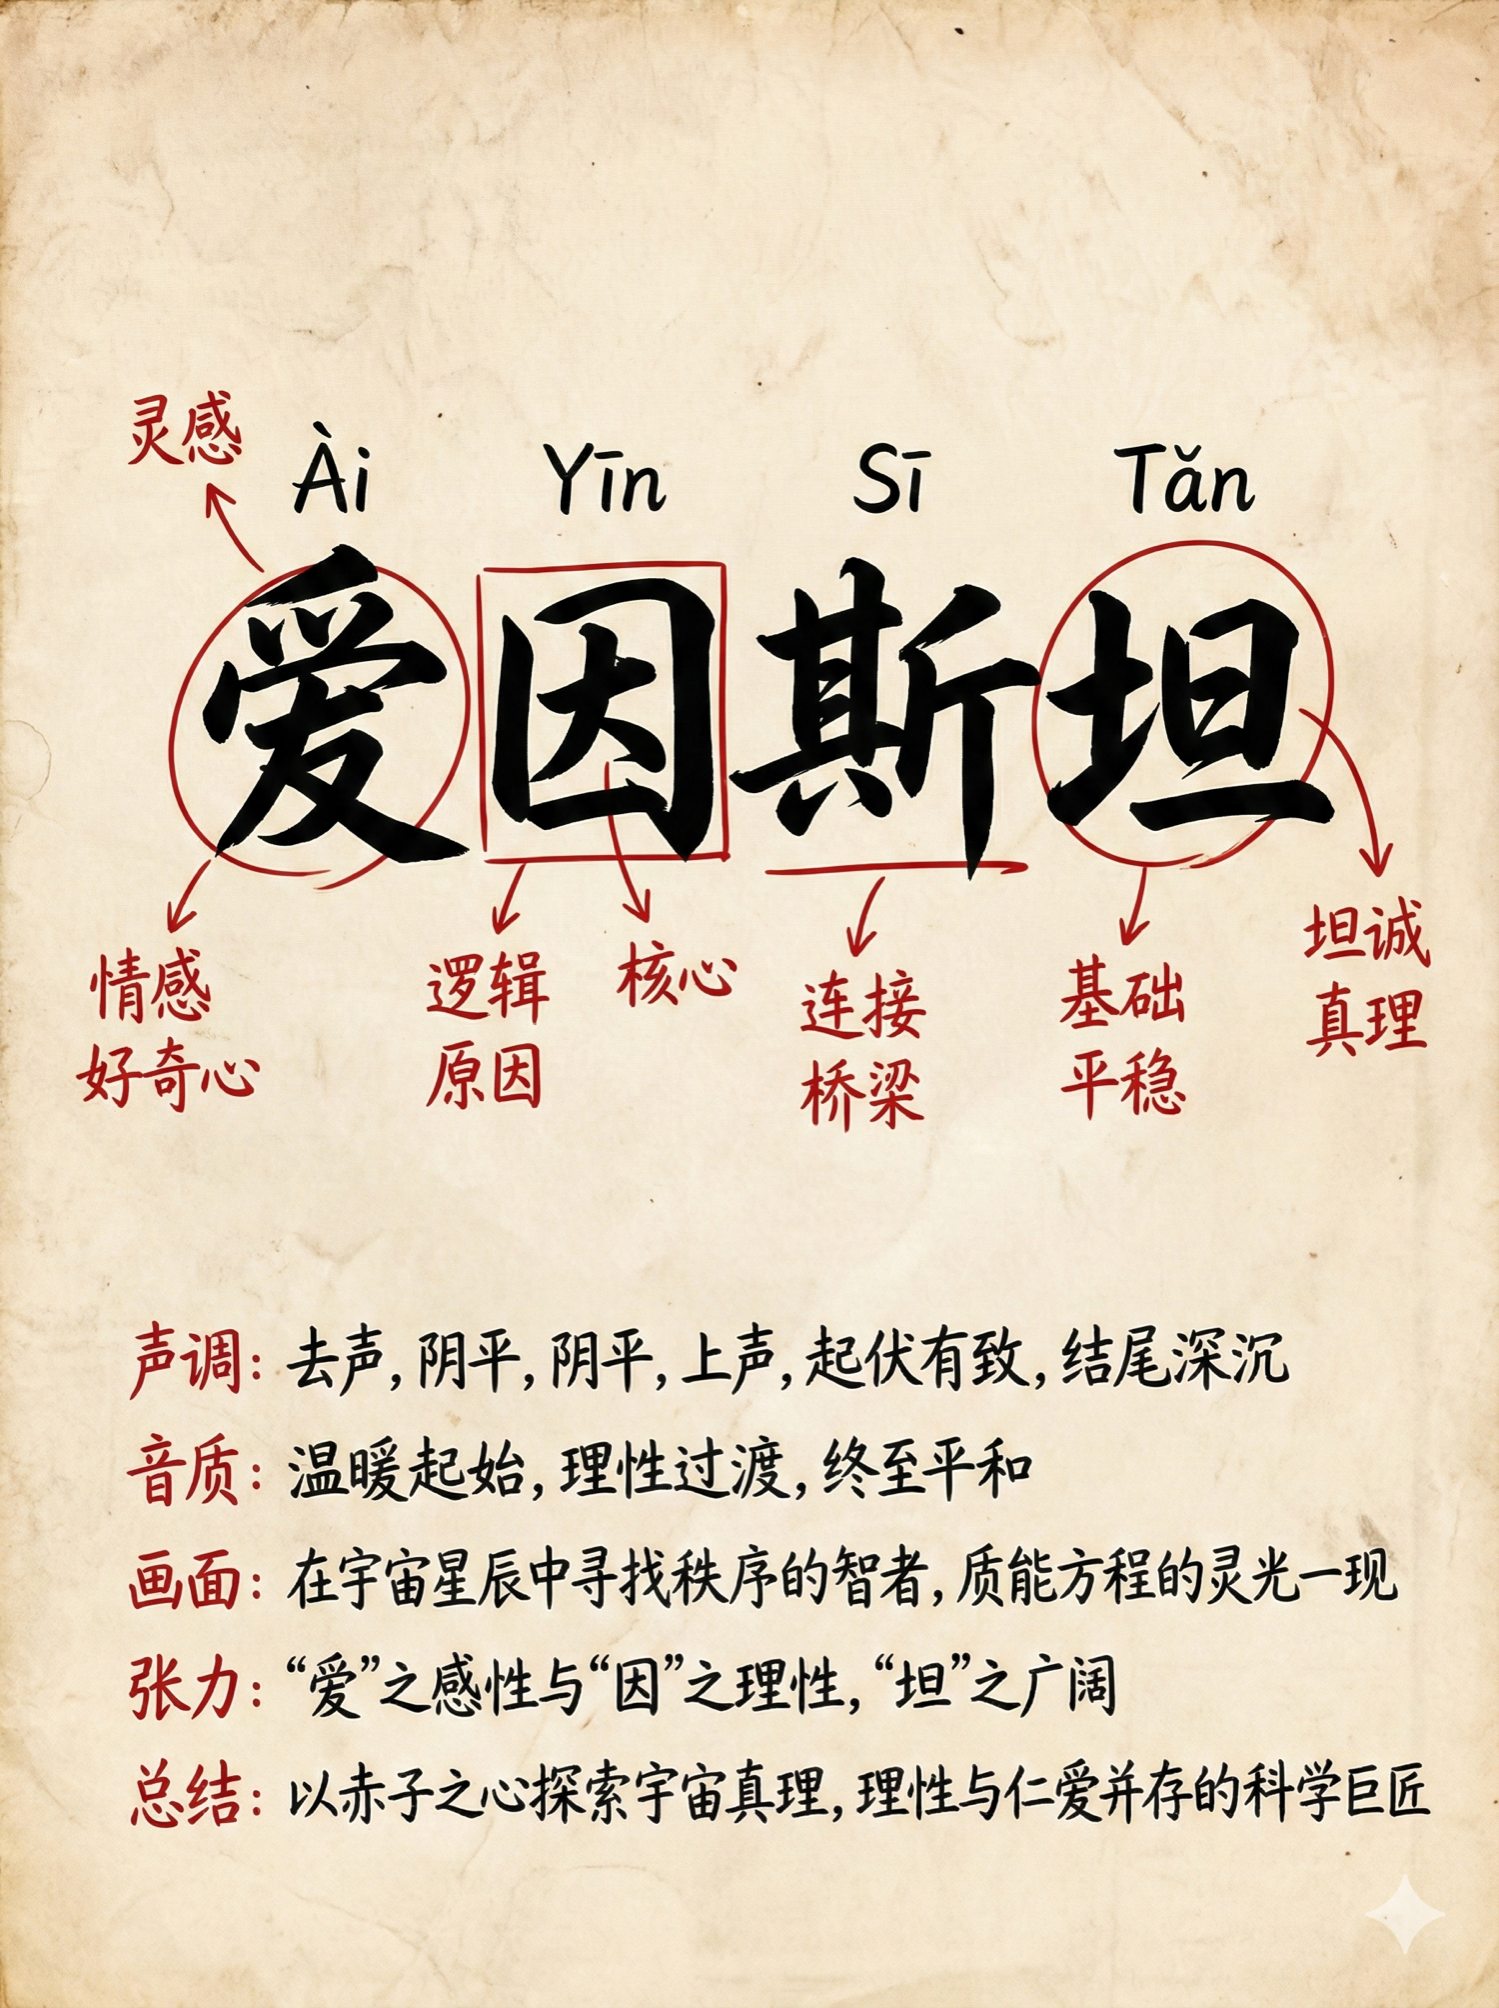 灵感
Ài Yīn Sī Tǎn
爱因斯坦
情感
好奇心
逻辑
原因
核心
连接
桥梁
基础
平稳
坦诚
真理
声调：去声，阴平，阴平，上声，起伏有致，结尾深沉
音质：温暖起始，理性过渡，终至平和
画面：在宇宙星辰中寻找秩序的智者，质能方程的灵光一现
张力：“爱”之感性与“因”之理性，“坦”之广阔
总结：以赤子之心探索宇宙真理，理性与仁爱并存的科学巨匠